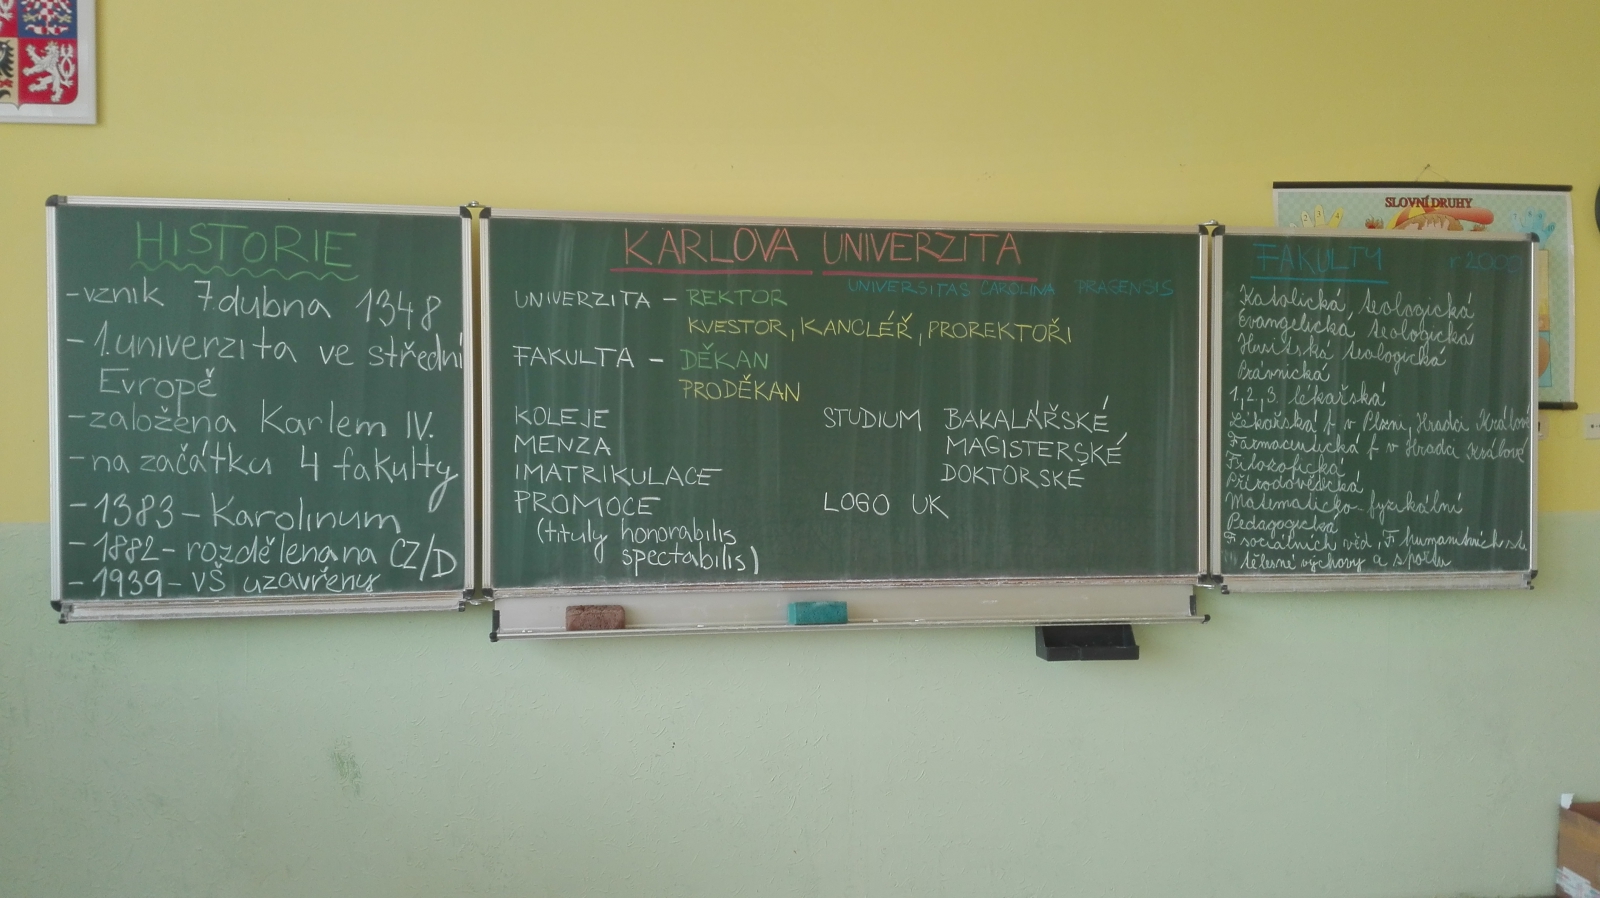 HISTORIE
-vznik 7dubna 1348
-1.univerzita ve střední
Evropě
-založena Karlem IV.
-na začátku 4 fakulty
-1383-Karolinum
-1882-rozdělena na CZ/D
-1939-VŠ uzavřeny
KARLOVA UNIVERZITA
UNIVERSITAS CAROLINA PRAGENSIS
UNIVERZITA - REKTOR
KVESTOR, KANCLÉŘ, PROREKTOŘI
FAKULTA - DĚKAN
PRODĚKAN
KOLEJE
MENZA
IMATRIKULACE
PROMOCE
(tituly honorabilis
spectabilis)
STUDIUM BAKALÁŘSKÉ
MAGISTERSKÉ
DOKTORSKÉ
LOGO UK
FAKULTY
Katolická, teologická
Evangelická teologická
Husitská teologická
Právnická
1,2,3. lékařská
Lékařská f v Plzni, Hradci Králové
Farmaceutická f v Hradci Králové
Filozofická
Přírodovědecká
Matematicko-fyzikální
Pedagogická
F sociálních věd, F humanitních st.
tělesné výchovy a sportu
SLOVNÍ DRUHY
2 3 4